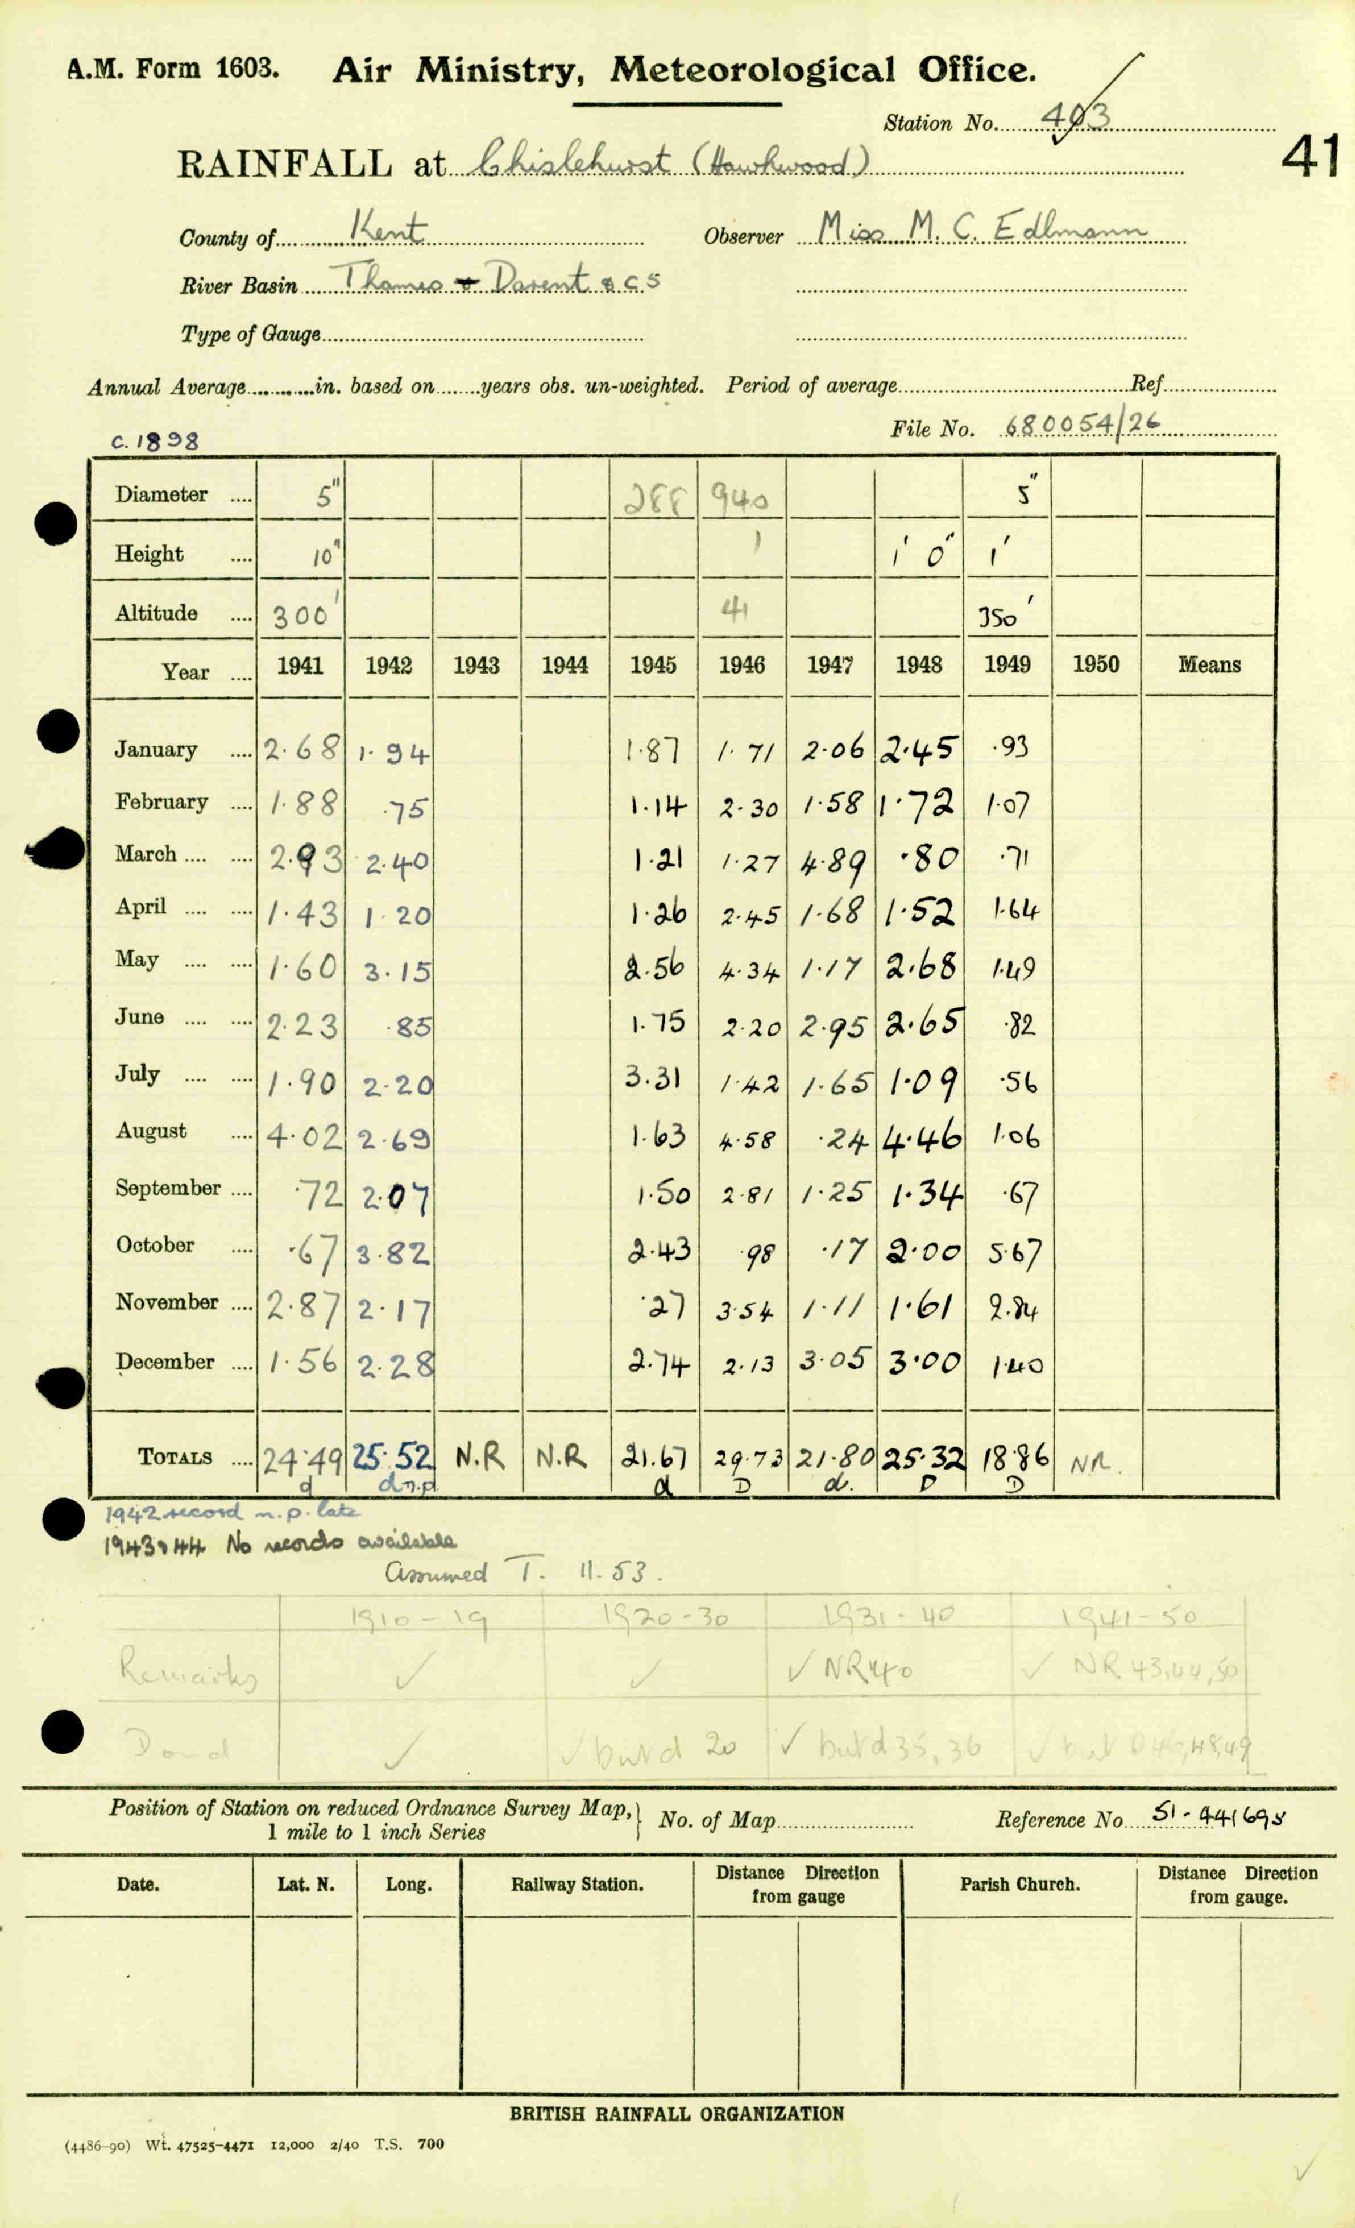 A.M. Form 1603. Air Ministry, Meteorological Office.
Station No. 403
41
RAINFALL at Chislehurst (Hawkwood)
County of Kent Observer Miss M. C. Edlmann
River Basin Thames + Darent & CS
Type of Gauge
Annual Average in. based on years obs. un-weighted. Period of average Ref
File No. 680054/26
c. 1898
Diameter 5" 288 940 5"
Height 10" 1 1' 0" 1'
Altitude 300' 41 350'
Year 1941 1942 1943 1944 1945 1946 1947 1948 1949 1950 Means
January 2.68 1.94 1.87 1.71 2.06 2.45 .93
February 1.88 .75 1.14 2.30 1.58 1.72 1.07
March 2.93 2.40 1.21 1.27 4.89 .80 .71
April 1.43 1.20 1.26 2.45 1.68 1.52 1.64
May 1.60 3.15 2.56 4.34 1.17 2.68 1.49
June 2.23 .85 1.75 2.20 2.95 2.65 .82
July 1.90 2.20 3.31 1.42 1.65 1.09 .56
August 4.02 2.69 1.63 4.58 .24 4.46 1.06
September .72 2.07 1.50 2.81 1.25 1.34 .67
October .67 3.82 2.43 .98 .17 2.00 5.67
November 2.87 2.17 .27 3.54 1.11 1.61 2.84
December 1.56 2.28 2.74 2.13 3.05 3.00 1.40
TOTALS 24.49 25.52 N.R N.R 21.67 29.73 21.80 25.32 18.86 NR.
d d n.p. d D d. D D
1942 record n.p. late
1943 & 44 No records available
Assumed T. 11.53.
1910-19 1920-30 1931-40 1941-50
Remarks ✓ ✓ ✓ NR 40 ✓ NR 43,44,50
D and d ✓ ✓ but d 20 ✓ but d 35, 36 ✓ but D 46,48,49
Position of Station on reduced Ordnance Survey Map, 1 mile to 1 inch Series } No. of Map Reference No 51-441695
Date. Lat. N. Long. Railway Station. Distance Direction from gauge Parish Church. Distance Direction from gauge.
BRITISH RAINFALL ORGANIZATION
(4486-90) Wt. 47525-4471 12,000 2/40 T.S. 700